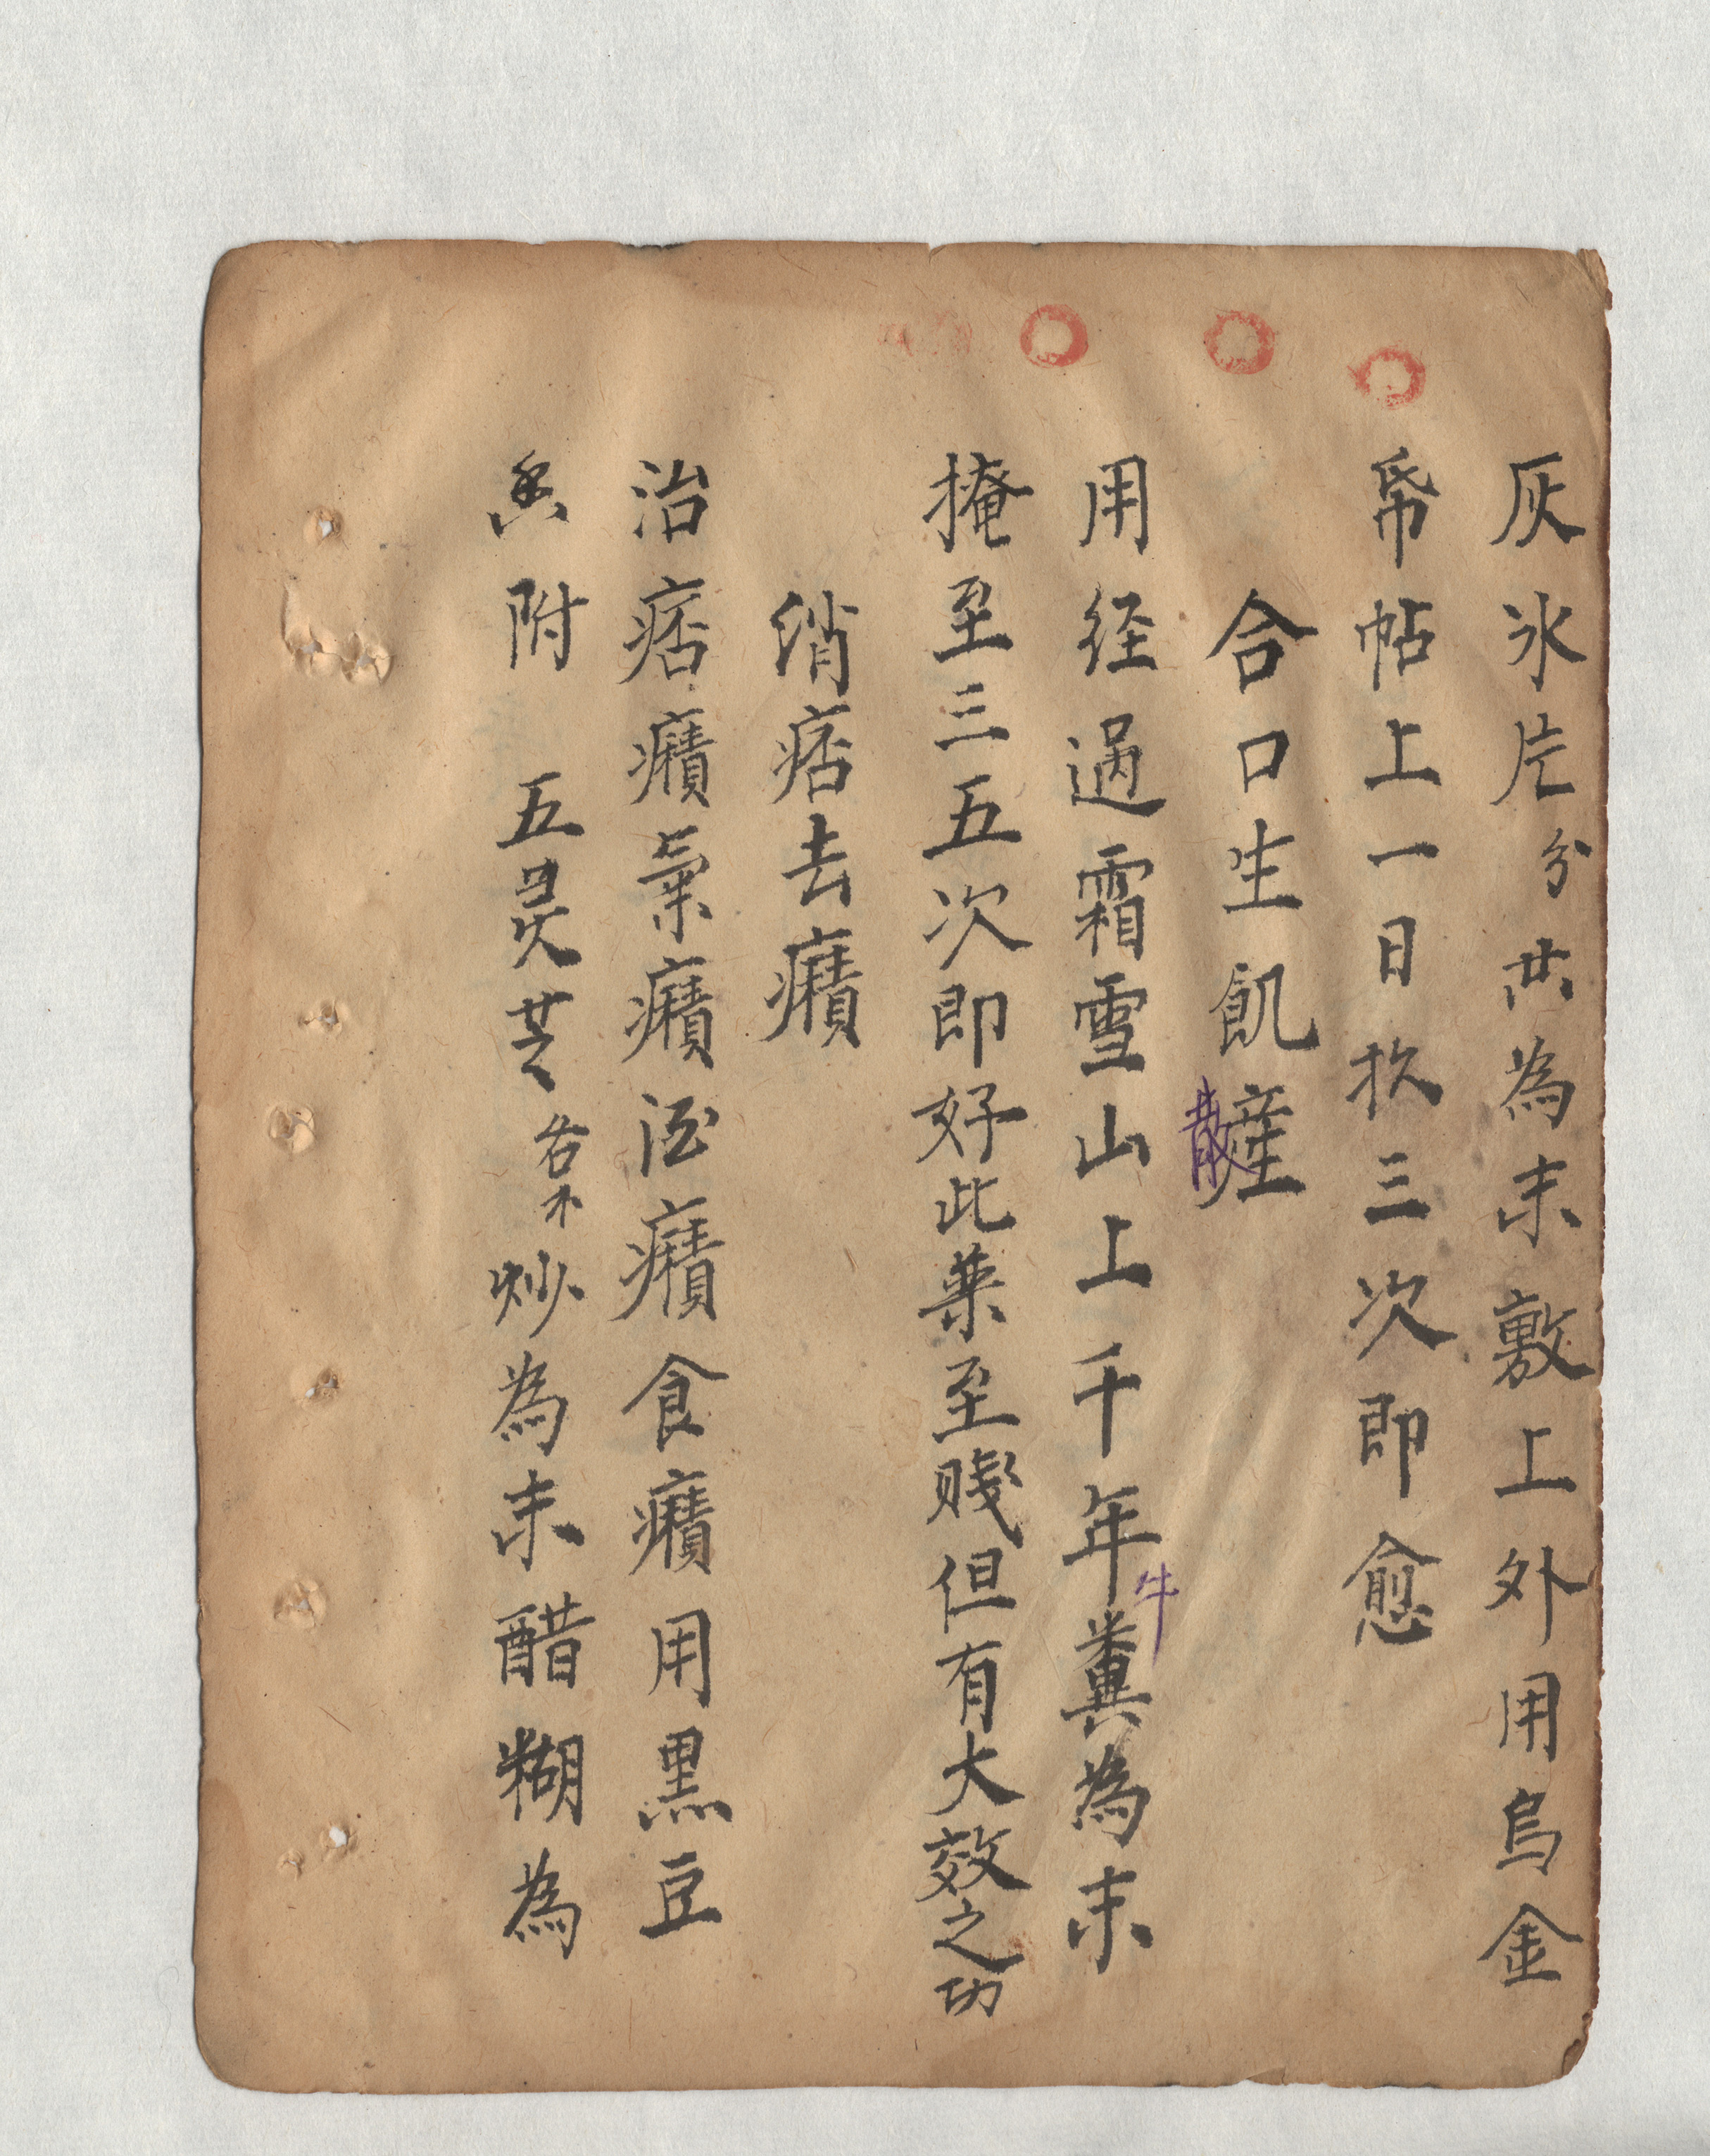 灰氷片分共為末敷上外用烏金
帋帖上一日扻三次即愈
合口生飢産
散
用径過霜雪山上千年糞為末
牛
掩至三五次即好此藥至賤但有大效之功
消痞去癪
治痞癪氣癪酒癪食癪用黒豆
香附 五灵芝各 炒為末醋糊為